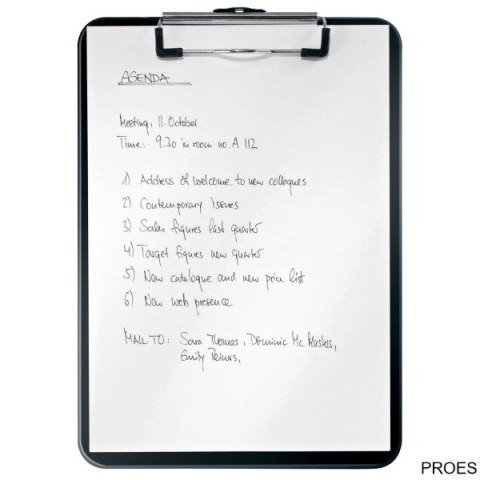 AGENDA
Meeting, 11. October
Time: 9.30 in room no. A 112
1) Address of welcome to new collegues
2) Contemporary Issues
3) Sales figures last quarter
4) Target figures new quarter
5) New catalogue and new price list
6) New web presence
MAIL TO: Sara Thomas, Dominic Mc
Emily
PROES